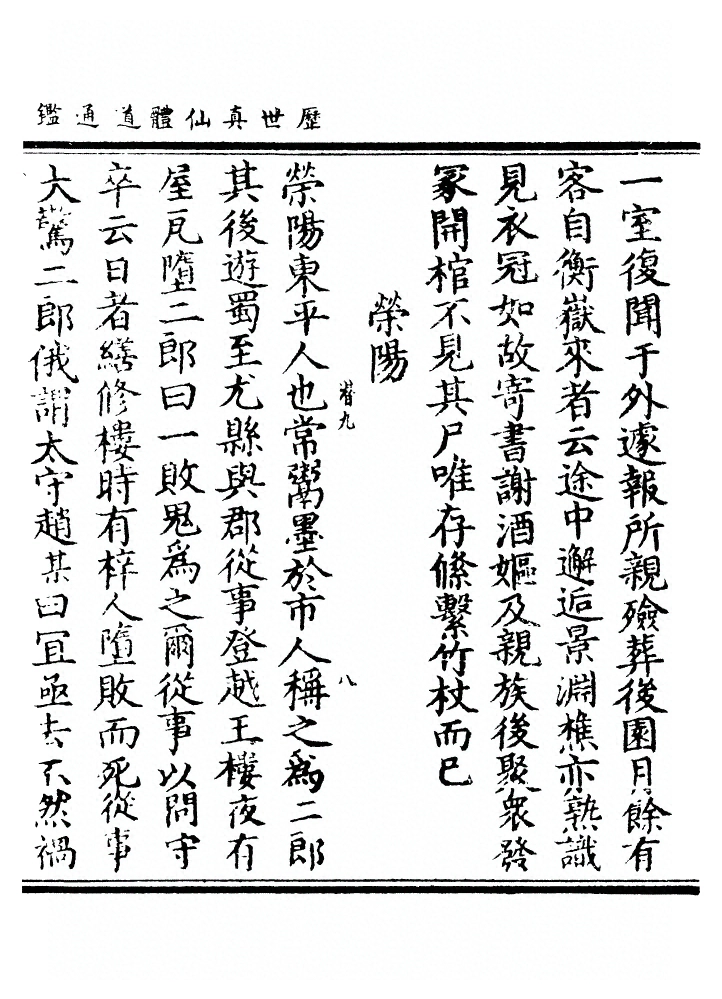 歷世真仙體道通鑑
一室復聞于外遽報所親殮葬後園月餘有
客自衡嶽來者云途中邂逅景淵樵亦熟識
見衣冠如故寄書謝酒嫗及親族後聚衆發
冢開棺不見其尸唯存絛繫竹杖而已
榮陽
潜九
八
榮陽東平人也常鬻墨於市人稱之為二郎
其後遊蜀至尤縣與郡從事登越王樓夜有
屋瓦墮二郎曰一敗鬼為之爾從事以問守
卒云日者繕修樓時有梓人墮敗而死從事
大驚二郎俄謂太守趙某曰宜亟去不然禍